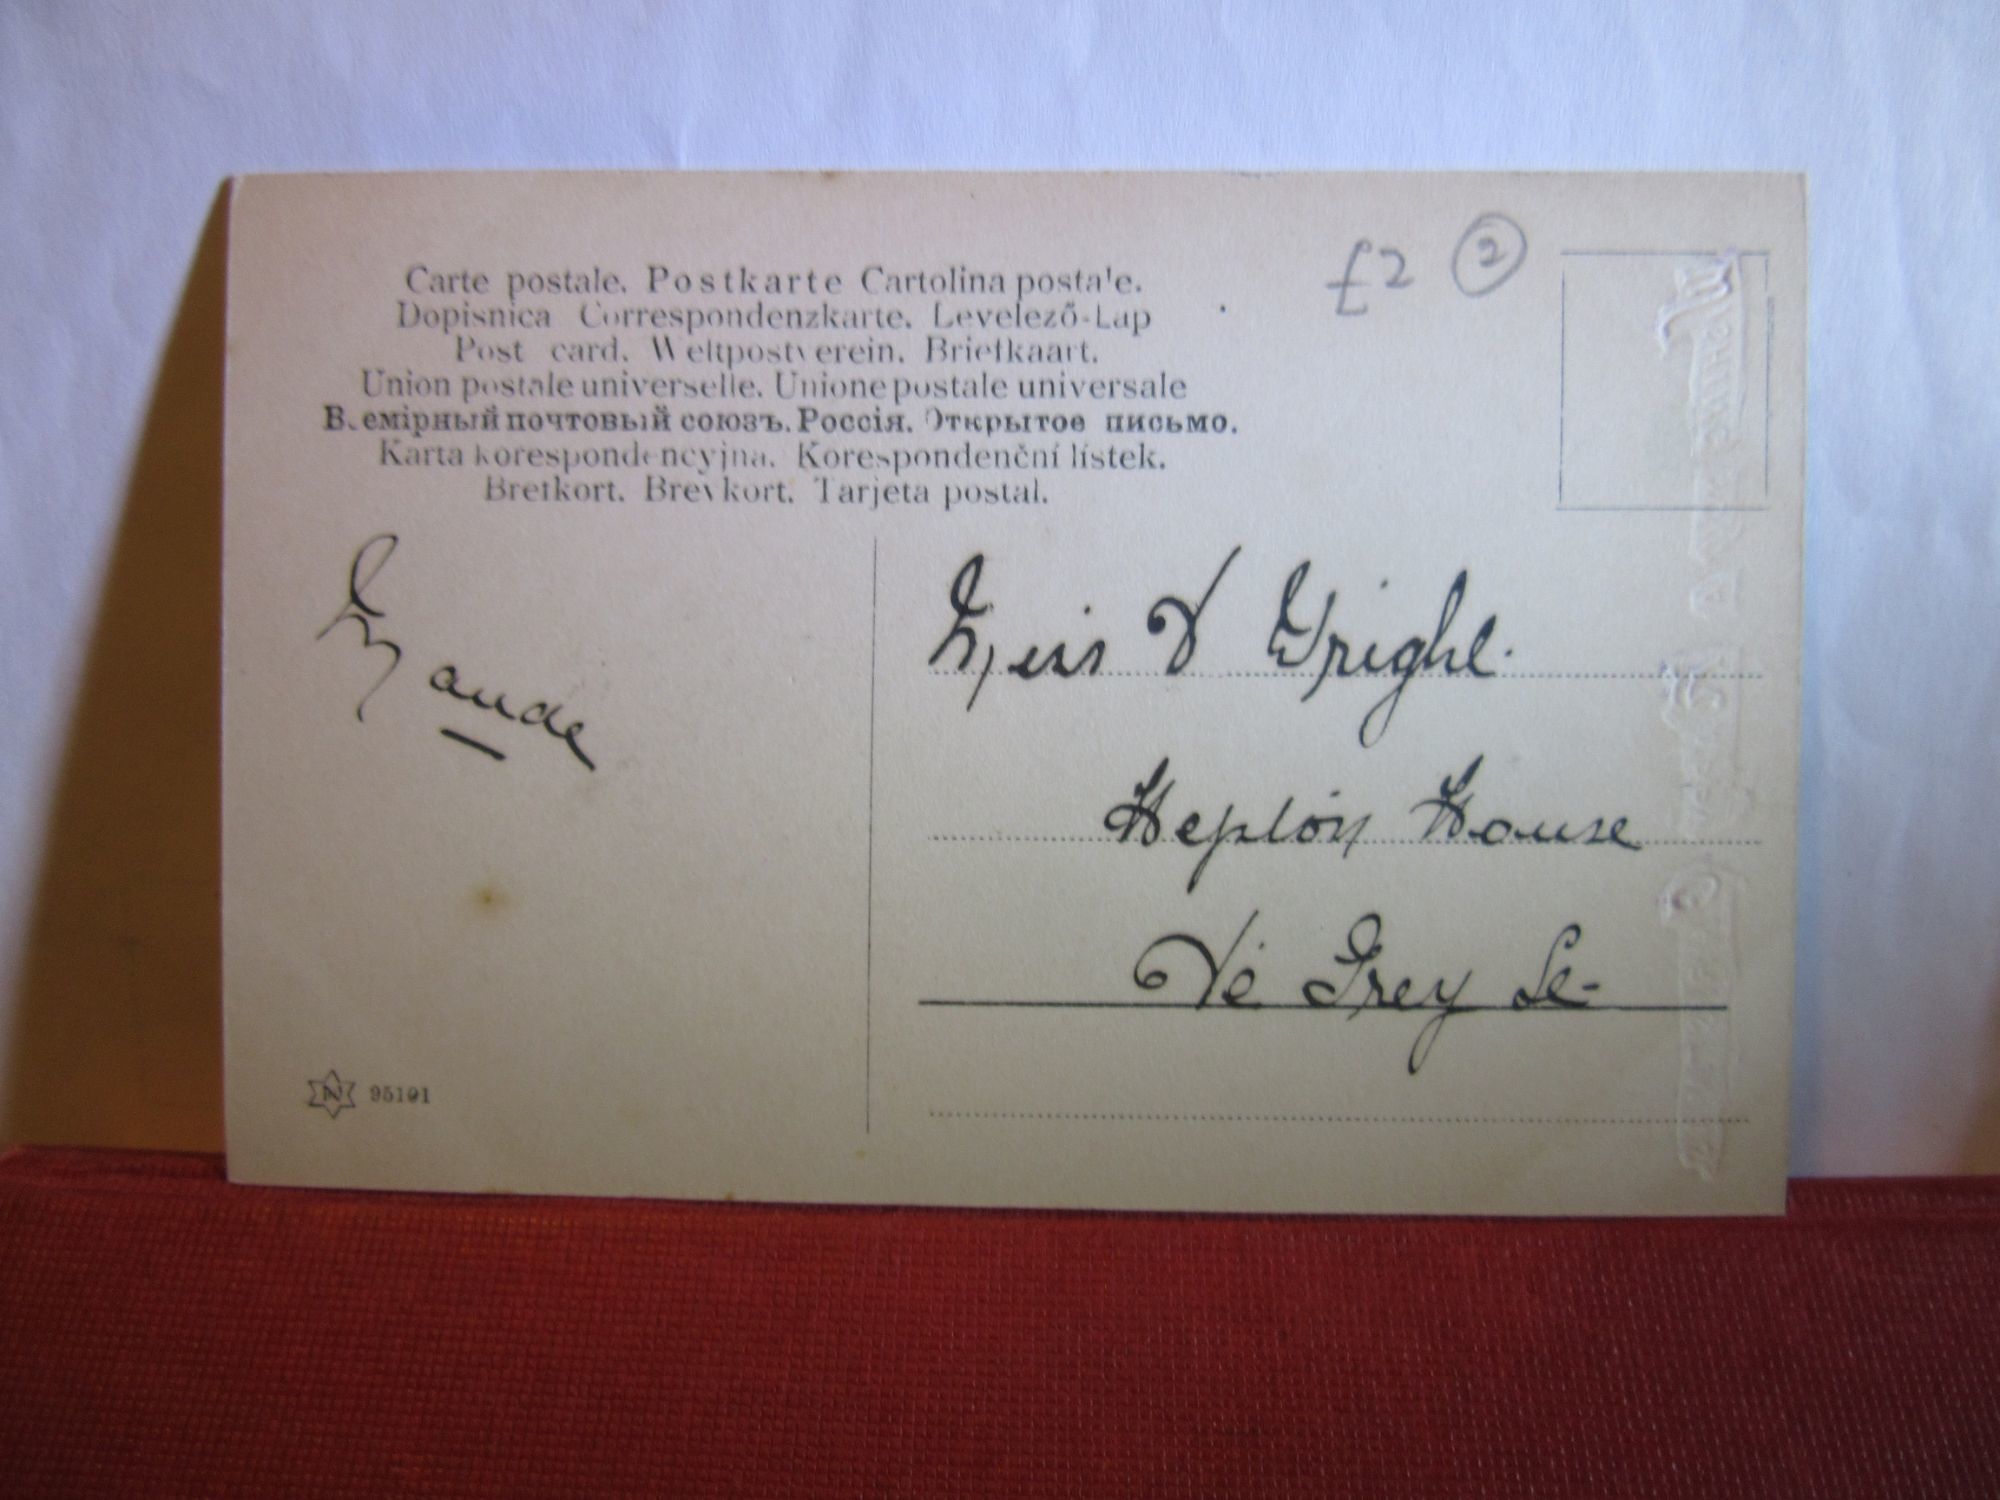 Carte postale. Postkarte Cartolina postale.
Dopisnica Correspondenzkarte. Levelező-Lap
Post card. Weltpostverein. Briefkaart.
Union postale universelle. Unione postale universale
Всемірный почтовый союзъ. Россія. Открытое письмо.
Karta korespondencyjna. Korespondenční lístek.
Brefkort. Brevkort. Tarjeta postal.
£2 2
Maude
Miss V Wright.
House
Grey
95101